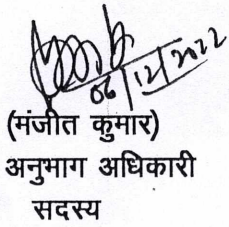 06/12/2022
(मंजीत कुमार)
अनुभाग अधिकारी
सदस्य